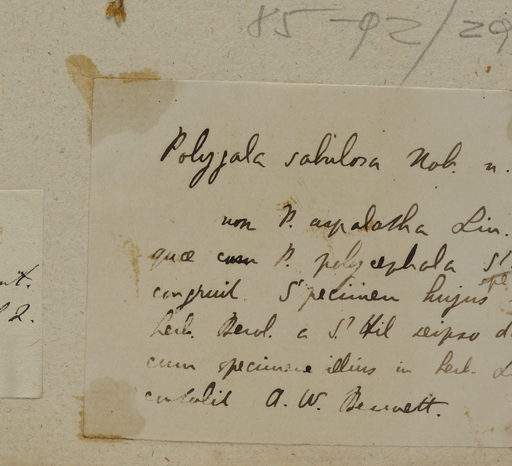 85-92/29
Polygala sabulosa Nob. n.
non P. aspalatha Lin.
nt.
quæ cum P. polycephala St
spe
congruit. Specimen hujus
2.
herb. Berol. a St Hil seipso d
cum specimine illius in herb. L
contulit A. W. Bennett.